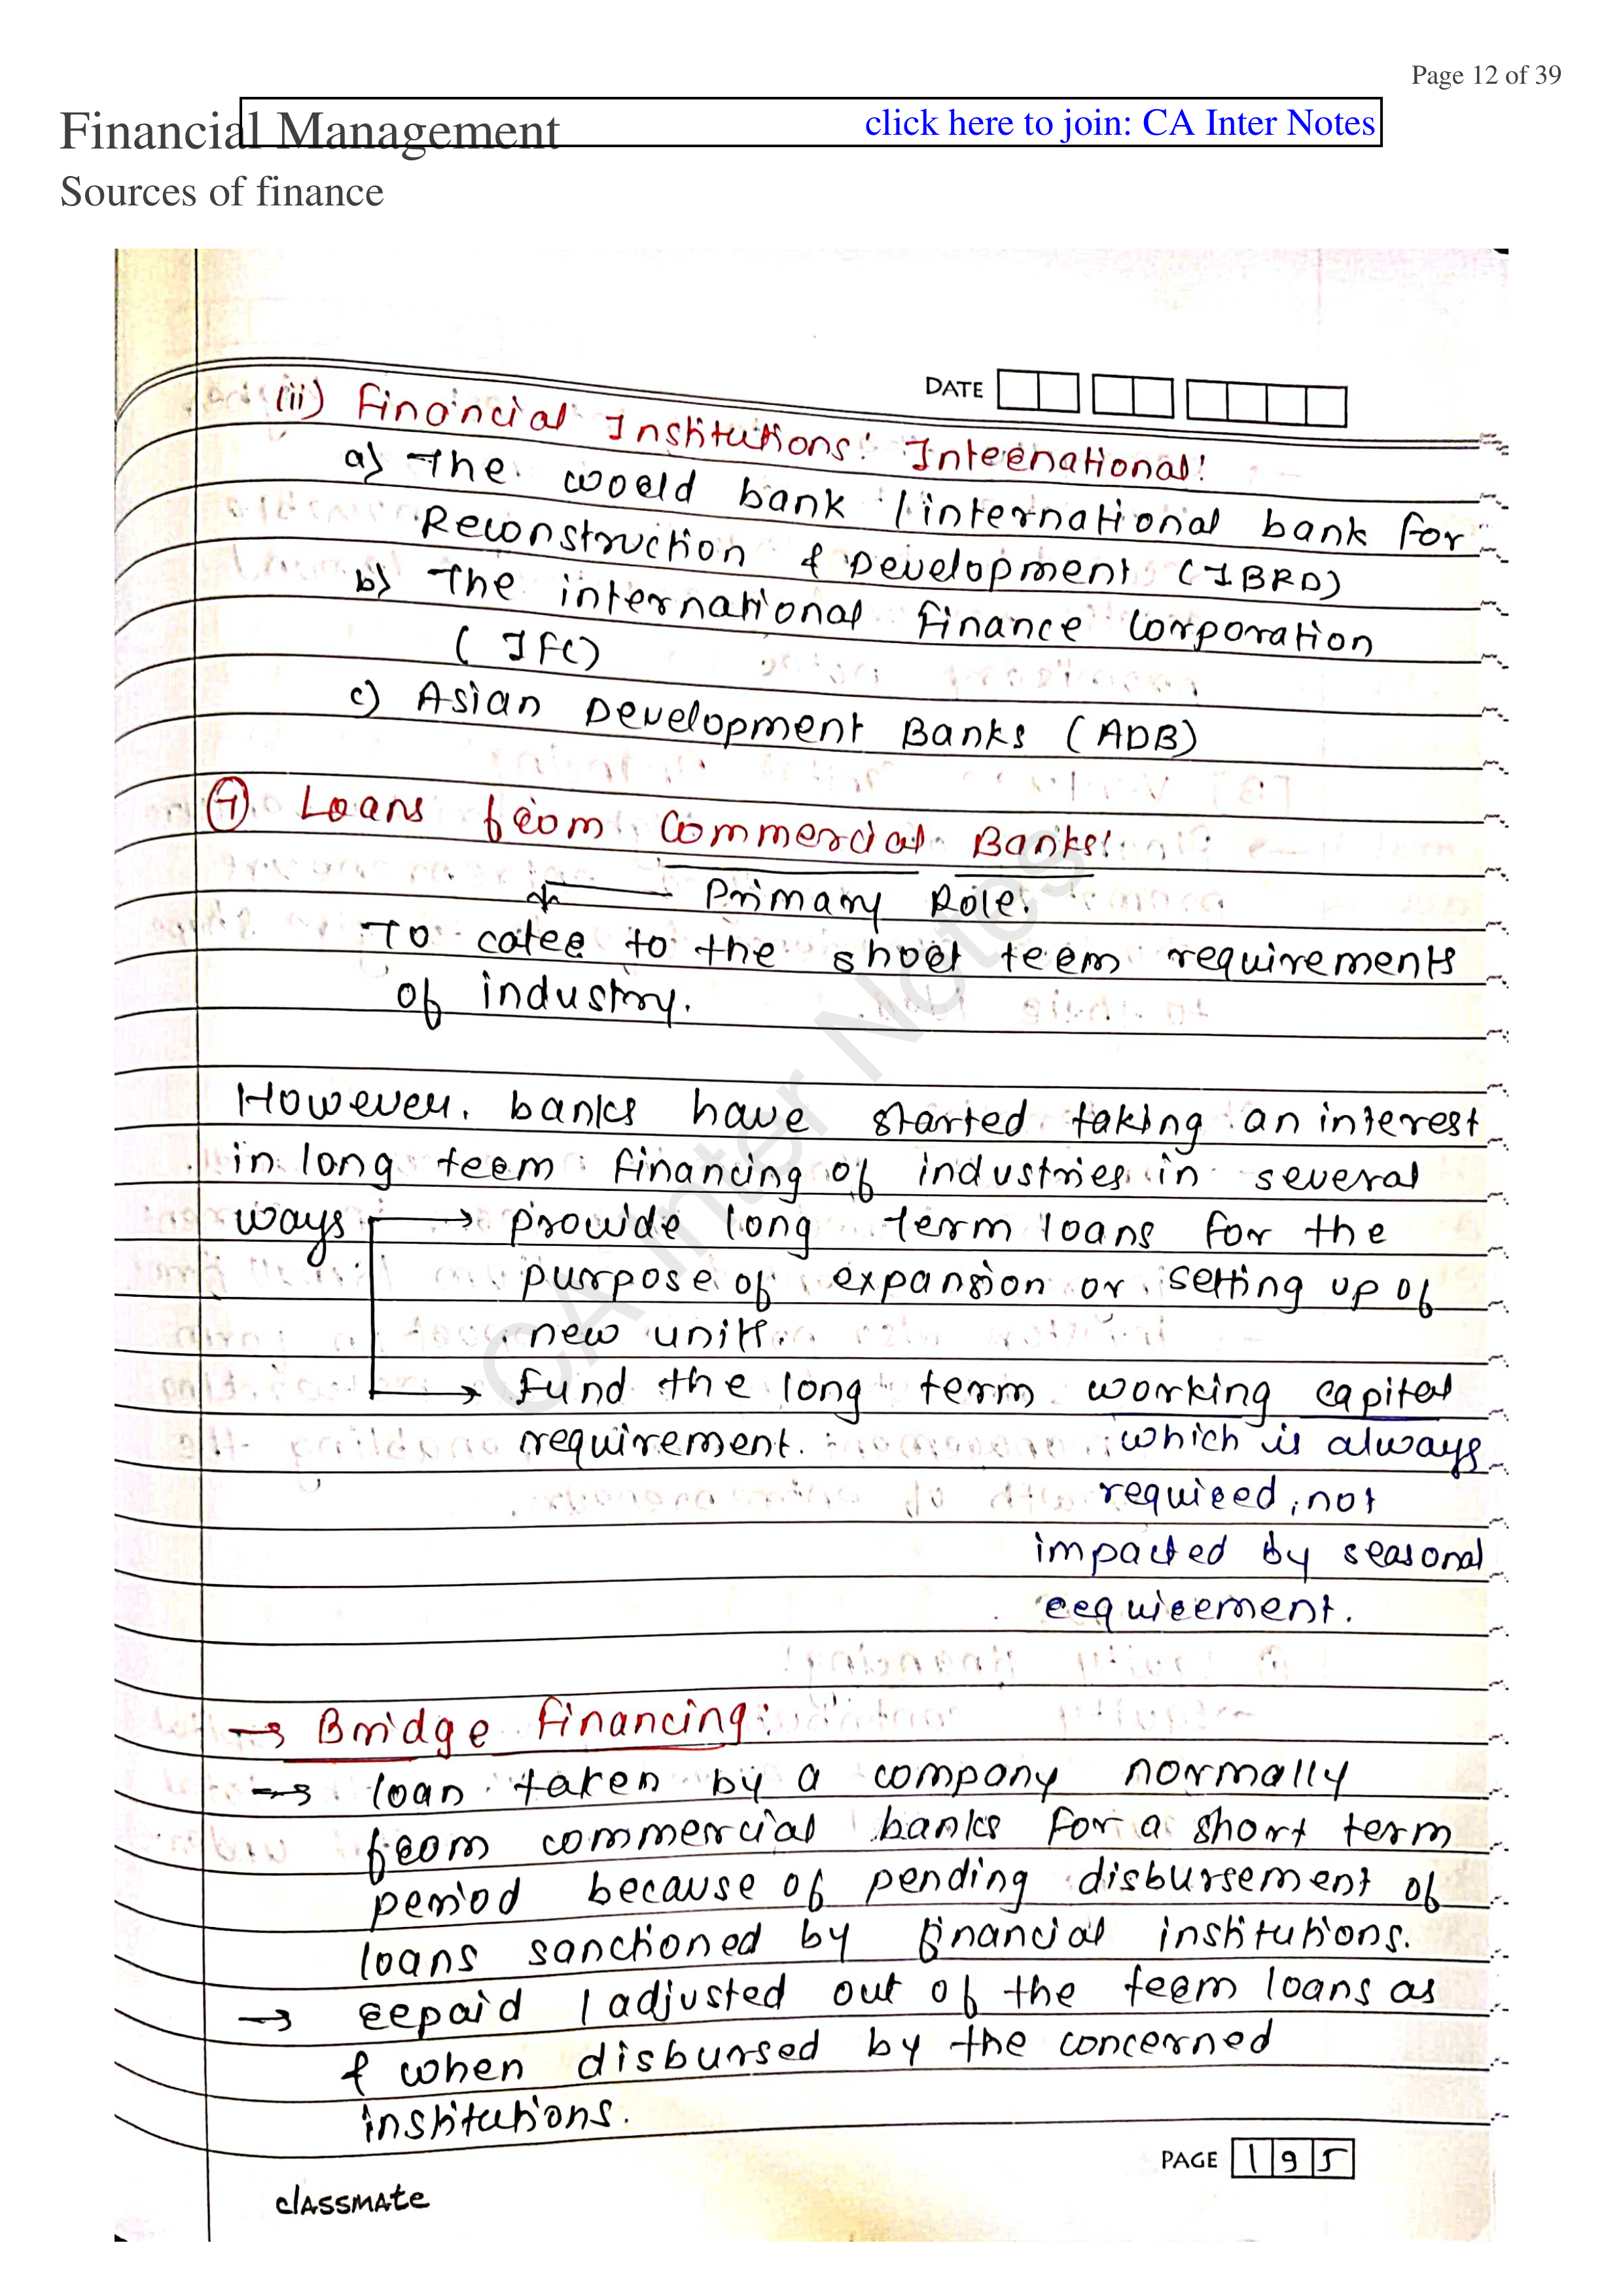 Page 12 of 39
Financial Management
click here to join: CA Inter Notes
Sources of finance
DATE
(ii) Financial Institutions: International:
a) The world bank / international bank for
Reconstruction & Development (IBRD)
b) The international finance corporation
(IFC)
c) Asian Development Banks (ADB)
⑦ Loans from Commercial Banks:
Primary Role.
To cater to the short term requirements
of industry.
However, banks have started taking an interest
in long term financing of industries in several
ways → provide long term loans for the
purpose of expansion or setting up of
new units.
→ Fund the long term working capital
requirement. which is always
required, not
impacted by seasonal
requirement.
→ Bridge Financing:
→ loan taken by a company normally
from commercial banks for a short term
period because of pending disbursement of
loans sanctioned by financial institutions.
→ repaid / adjusted out of the term loans as
& when disbursed by the concerned
institutions.
PAGE 195
classmate
CA Inter Notes